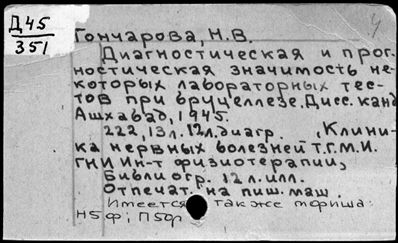 Д45
351
Гончарова, Н.В.
Диагностическая и прог-
ностическая значимость не-
которых лабораторных тес-
тов при бруцеллезе. Дисс. канд
Ашхабад, 1945.
222, 13 л. 12 л. диагр. , Клини-
ка нервных болезней Т.Г.М.И.
ГНИ Ин-т физиотерапии,
Библиогр. 12 л. илл.
Отпечат. на пиш. маш.
Имеется также